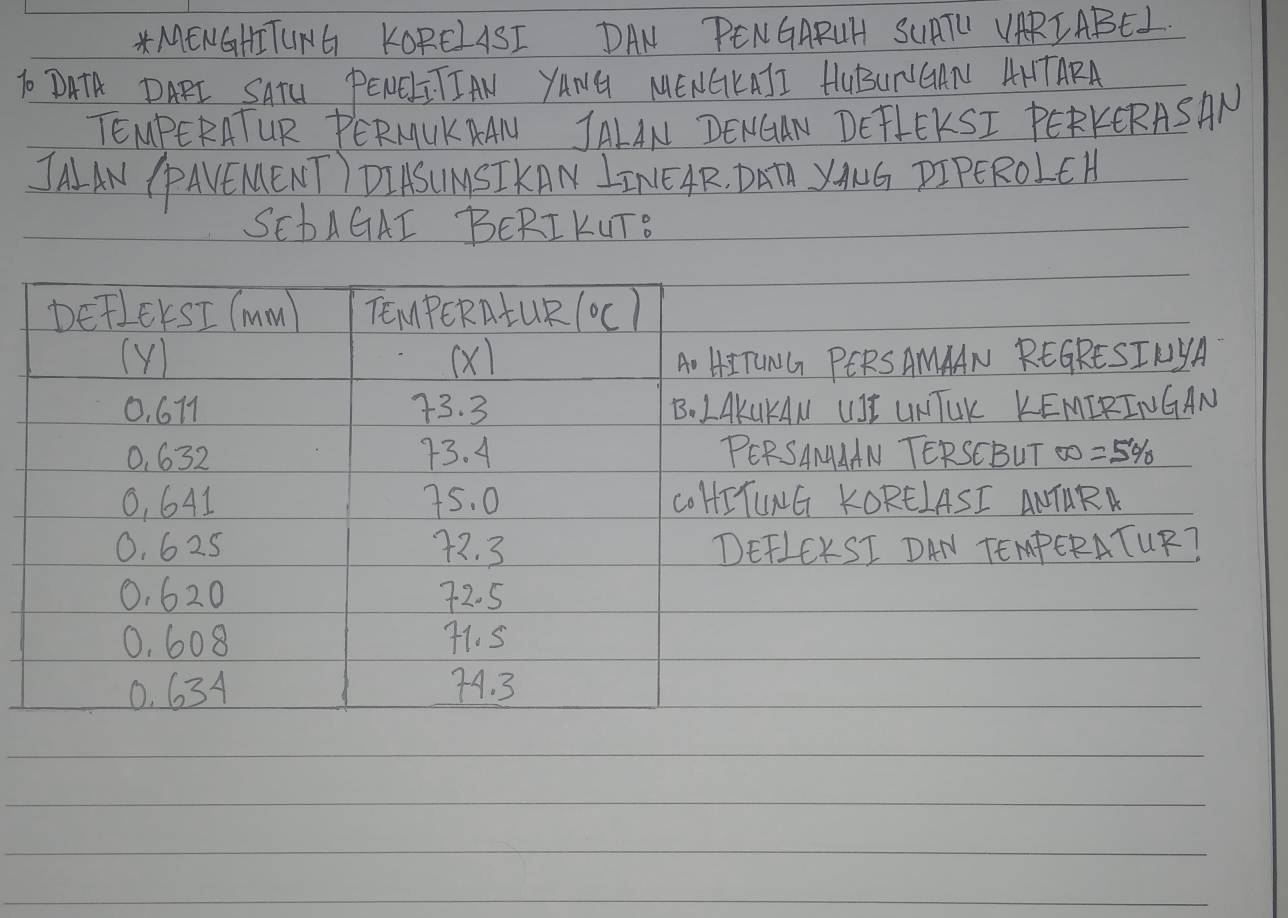 *MENGHITUNG KORELASI DAN PENGARUH SUATU VARIABEL.
1. DATA DARI SATU PENELITIAN YANG MENGKAJI HUBUNGAN ANTARA
TEMPERATUR PERMUKAAN JALAN DENGAN DEFLEKSI PERKERASAN
JALAN (PAVEMENT) DIASUMSIKAN LINEAR. DATA YANG DIPEROLEH
SEbAGAI BERIKUT:
DEFLEKSI (mm) TEMPERAtUR (°C)
(Y) (X) A. HITUNG PERSAMAAN REGRESINYA
0.611 73.3 B. LAKUKAN UJI UNTUK KEMIRINGAN
0,632 73.4 PERSAMAAN TERSEBUT ∞ = 5%
0,641 75.0 C. HITUNG KORELASI ANTARA
0.625 72.3 DEFLEKSI DAN TEMPERATUR?
0.620 72.5
0.608 71.5
0.634 74.3